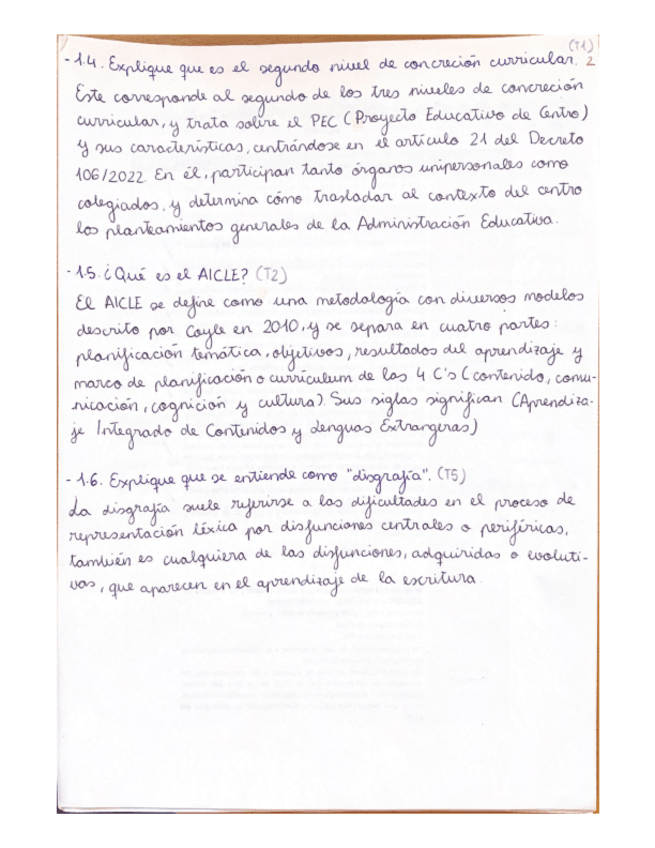 (T1)
- 1.4. Explique que es el segundo nivel de concreción curricular. 2
Este corresponde al segundo de los tres niveles de concreción
curricular, y trata sobre el PEC (Proyecto Educativo de Centro)
y sus características, centrándose en el artículo 21 del Decreto
106/2022. En él, participan tanto órganos unipersonales como
colegiados, y determina cómo trasladar al contexto del centro
los planteamientos generales de la Administración Educativa.
- 1.5. ¿Qué es el AICLE? (T2)
El AICLE se define como una metodología con diversos modelos
descrito por Coyle en 2010, y se separa en cuatro partes:
planificación temática, objetivos, resultados del aprendizaje y
marco de planificación o currículum de las 4 C's (contenido, comu-
nicación, cognición y cultura). Sus siglas significan (Aprendiza-
je Integrado de Contenidos y Lenguas Extrangeras)
- 1.6. Explique que se entiende como "disgrafía". (T5)
La disgrafía suele referirse a las dificultades en el proceso de
representación léxica por disfunciones centrales o periféricas,
también es cualquiera de las disfunciones, adquiridas o evoluti-
vas, que aparecen en el aprendizaje de la escritura.